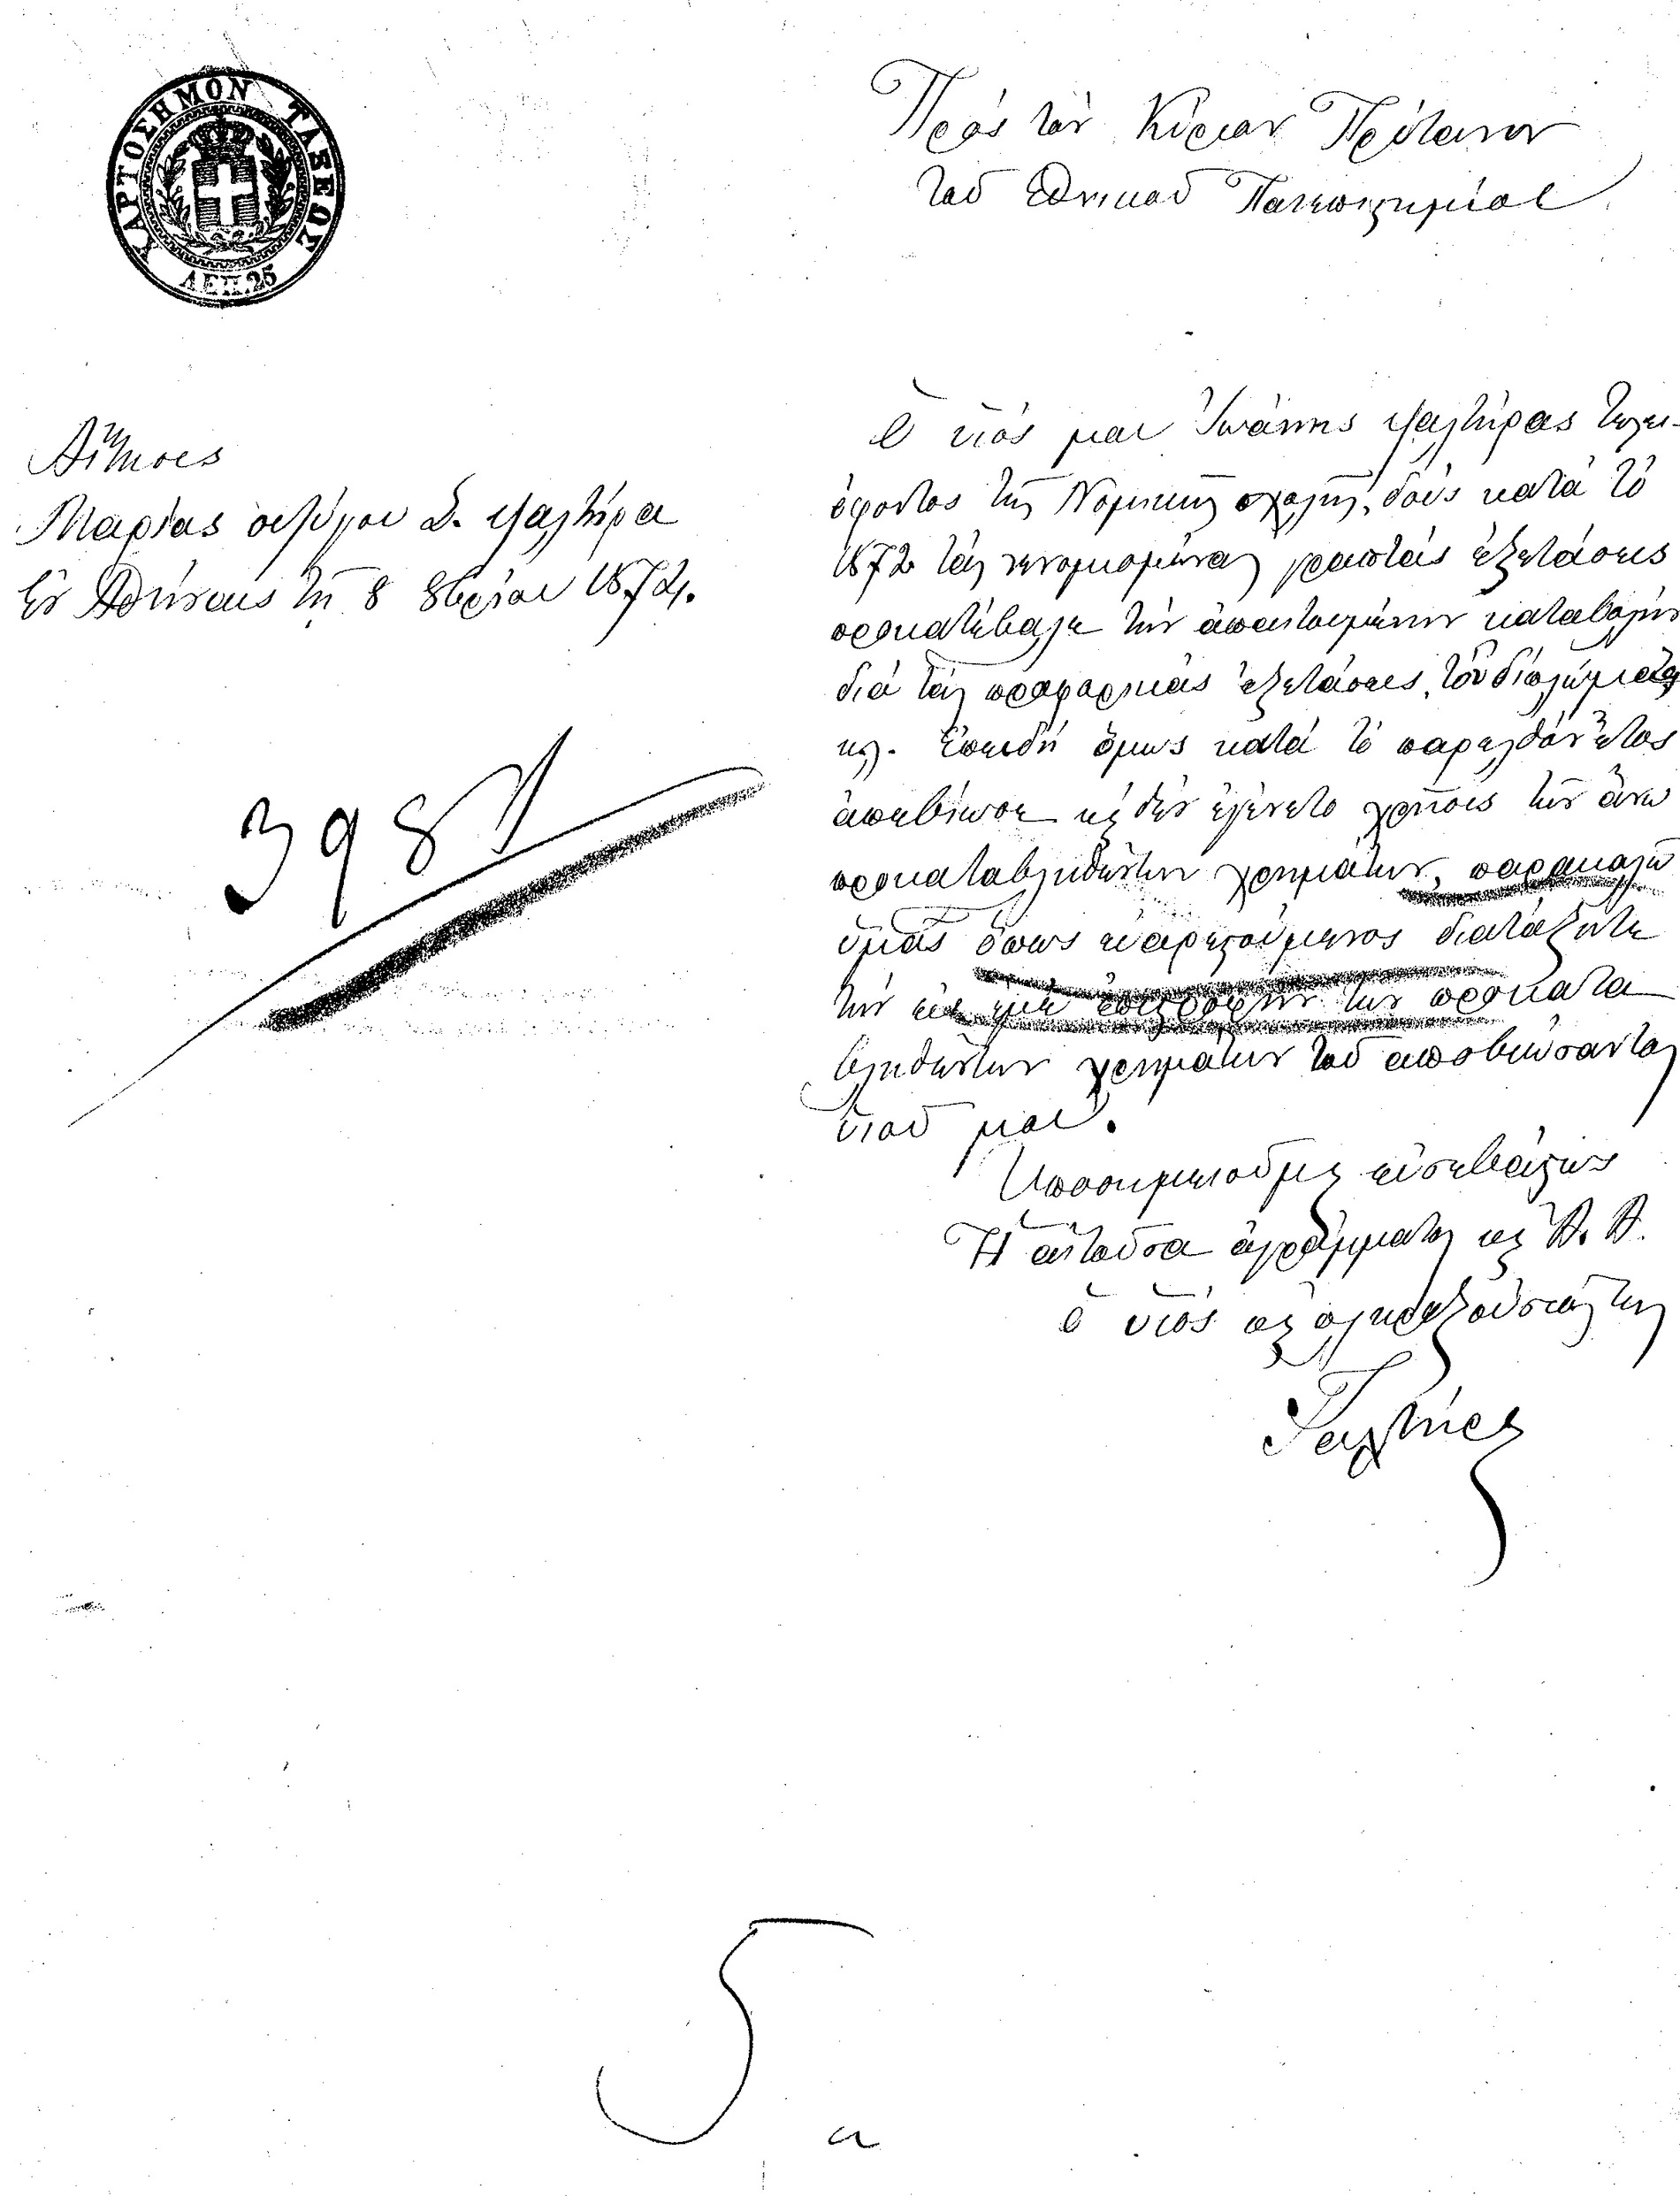 ΧΑΡΤΟΣΗΜΟΝ ΤΑΞΕΩΣ
ΛΕΠ. 25
Πρὸς τὸν Κύριον Πρύτανιν
τοῦ Ἐθνικοῦ Πανεπιστημίου
Αἴτησις
Μαρίας συζύγου Σ. Ψαλτήρα
Ἐν Ἀθήναις τῇ 8 8βρίου 1874.
3981
Ὁ υἱός μου Ἰωάννης Ψαλτήρας τελει-
όφοιτος τῆς Νομικῆς σχολῆς, δοὺς κατὰ τὸ
1872 τὰς νενομισμένας γραπτὰς ἐξετάσεις
προκατέβαλε τὴν ἀπαιτουμένην καταβολὴν
διὰ τὰς προφορικὰς ἐξετάσεις, τοῦ διπλώματος
κλ. Ἐπειδὴ ὅμως κατὰ τὸ παρελθὸν ἔτος
ἀπεβίωσε κ δὲν ἐγένετο χρῆσις τῶν ἄνω
προκαταβληθέντων χρημάτων, παρακαλῶ
ὑμᾶς ὅπως εὐαρεστούμενος διατάξητε
τὴν εἰς ἐμὲ ἐπιστροφὴν τῶν προκατα
βληθέντων χρημάτων τοῦ ἀποβιώσαντος
υἱοῦ μου.
Ὑποσημειοῦμαι εὐσεβάστως
Ἡ αἰτοῦσα ἀγράμματος κ ἀ. ἀ.
ὁ υἱὸς κ πληρεξούσιός της
5